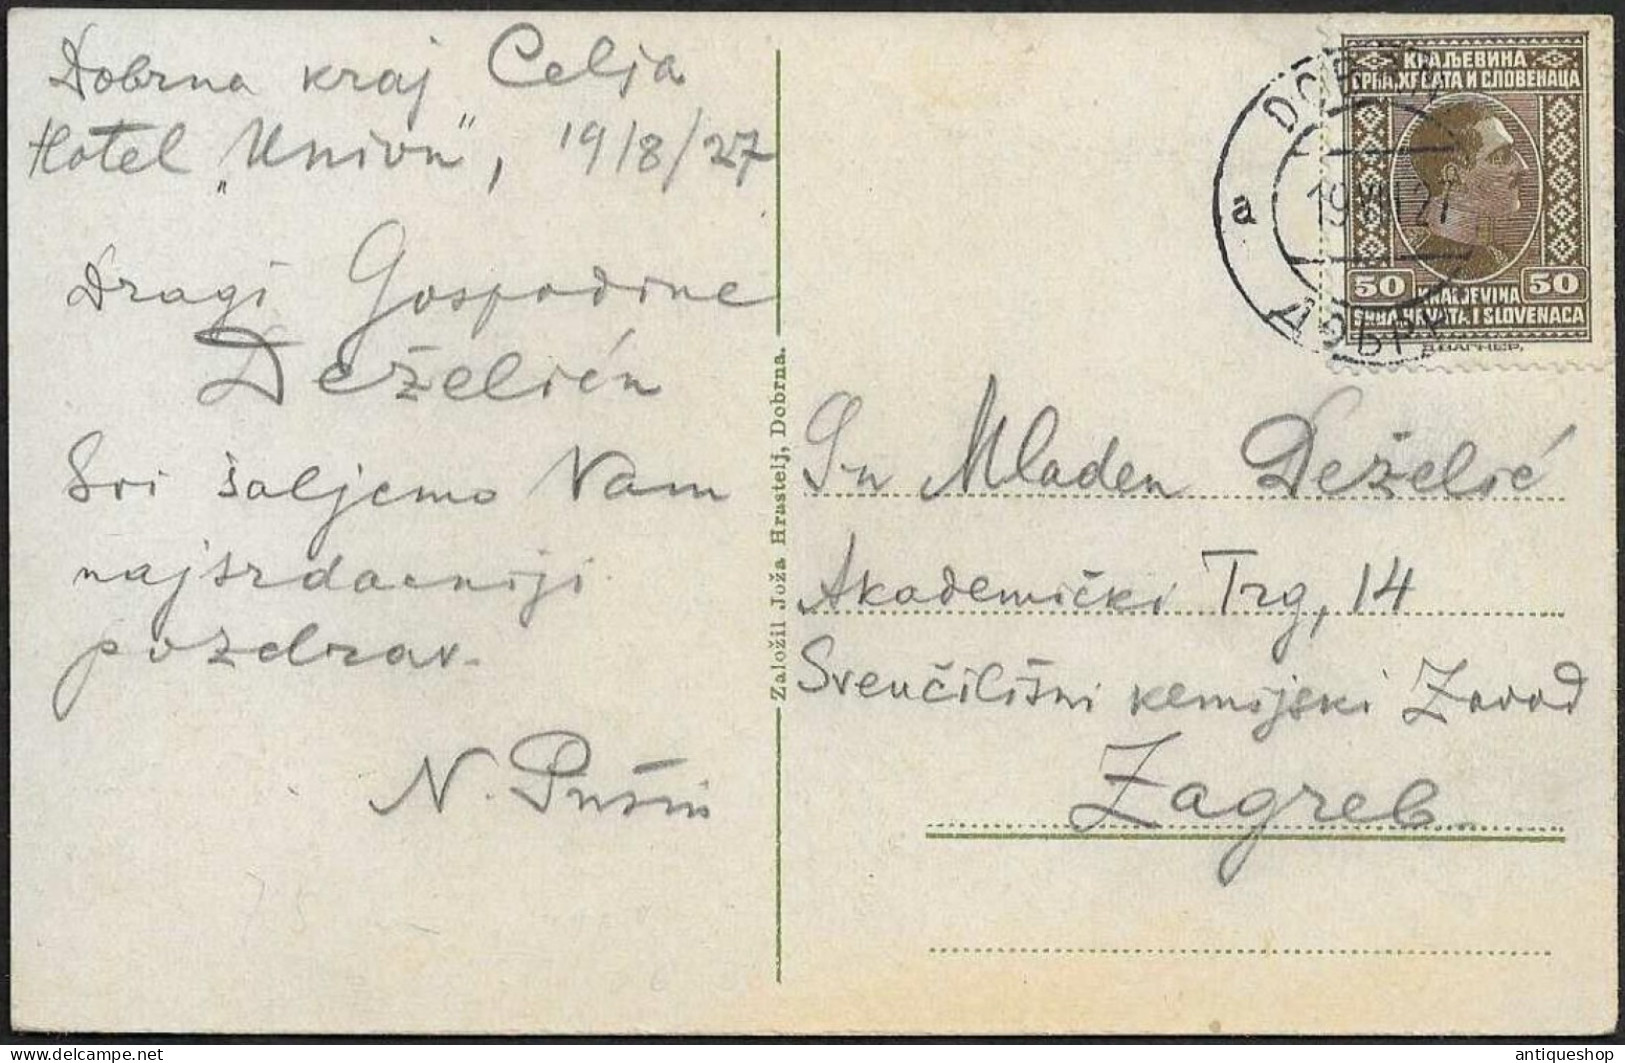 Dobrna kraj Celja
Hotel „Union“, 19/8/27
Dragi Gospodine
Deželiću
Svi šaljemo Vam
najsrdačniji
pozdrav.
N. Pušin
Založil Joža Hrastelj, Dobrna.
КРАЉЕВИНА
СРБА, ХРВАТА И СЛОВЕНАЦА
50 50
KRALJEVINA
SRBA, HRVATA I SLOVENACA
Д.ВАГНЕР.
DOBRNA
a
19.VIII 27
ДОБРНА
G-n Mladen Deželić
Akademički Trg, 14
Sveučilišni kemijski Zavod
Zagreb
antiqueshop